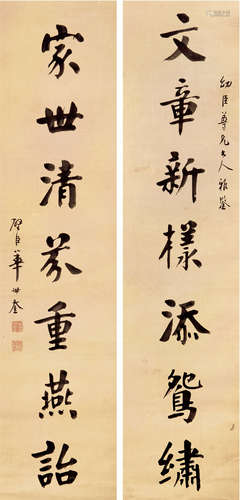 幼臣尊兄大人雅鑒
文章新樣添鴛繡
家世清芬重燕詒
璧臣華世奎